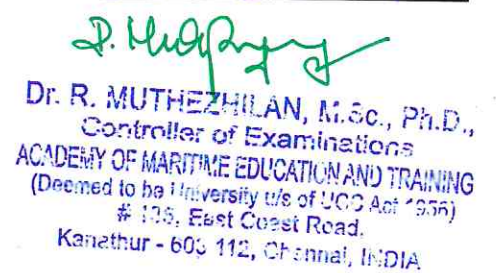 Dr. R. MUTHEZHILAN, M.Sc., Ph.D.,
Controller of Examinations
ACADEMY OF MARITIME EDUCATION AND TRAINING
(Deemed to be University u/s of UGC Act 1956)
# 135, East Coast Road,
Kanathur - 603 112, Chennai, INDIA